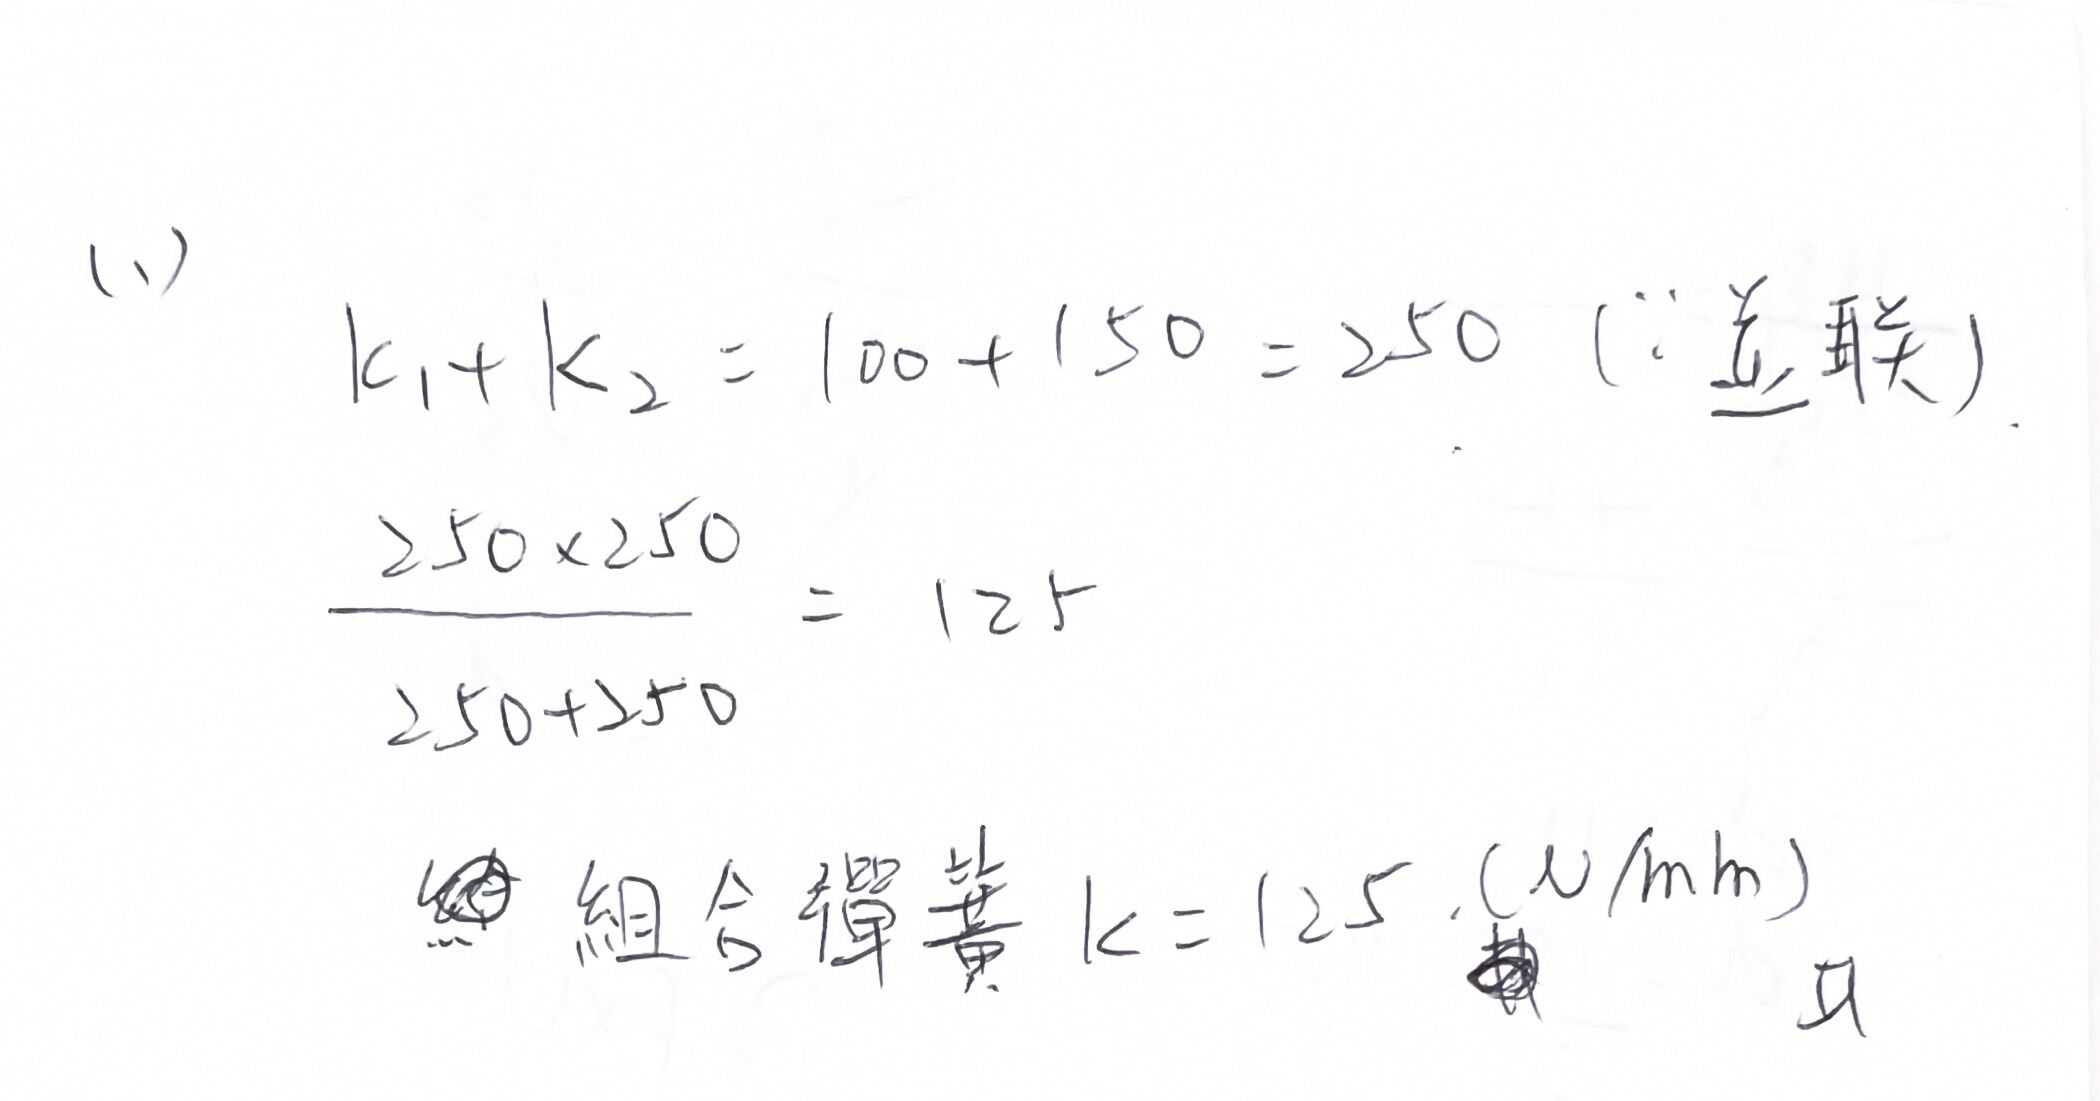 (1)
k₁+k₂ = 100+150 = 250 (∵並联).
250×250
= 125
250+250
組合彈簧 k=125 (N/mm)